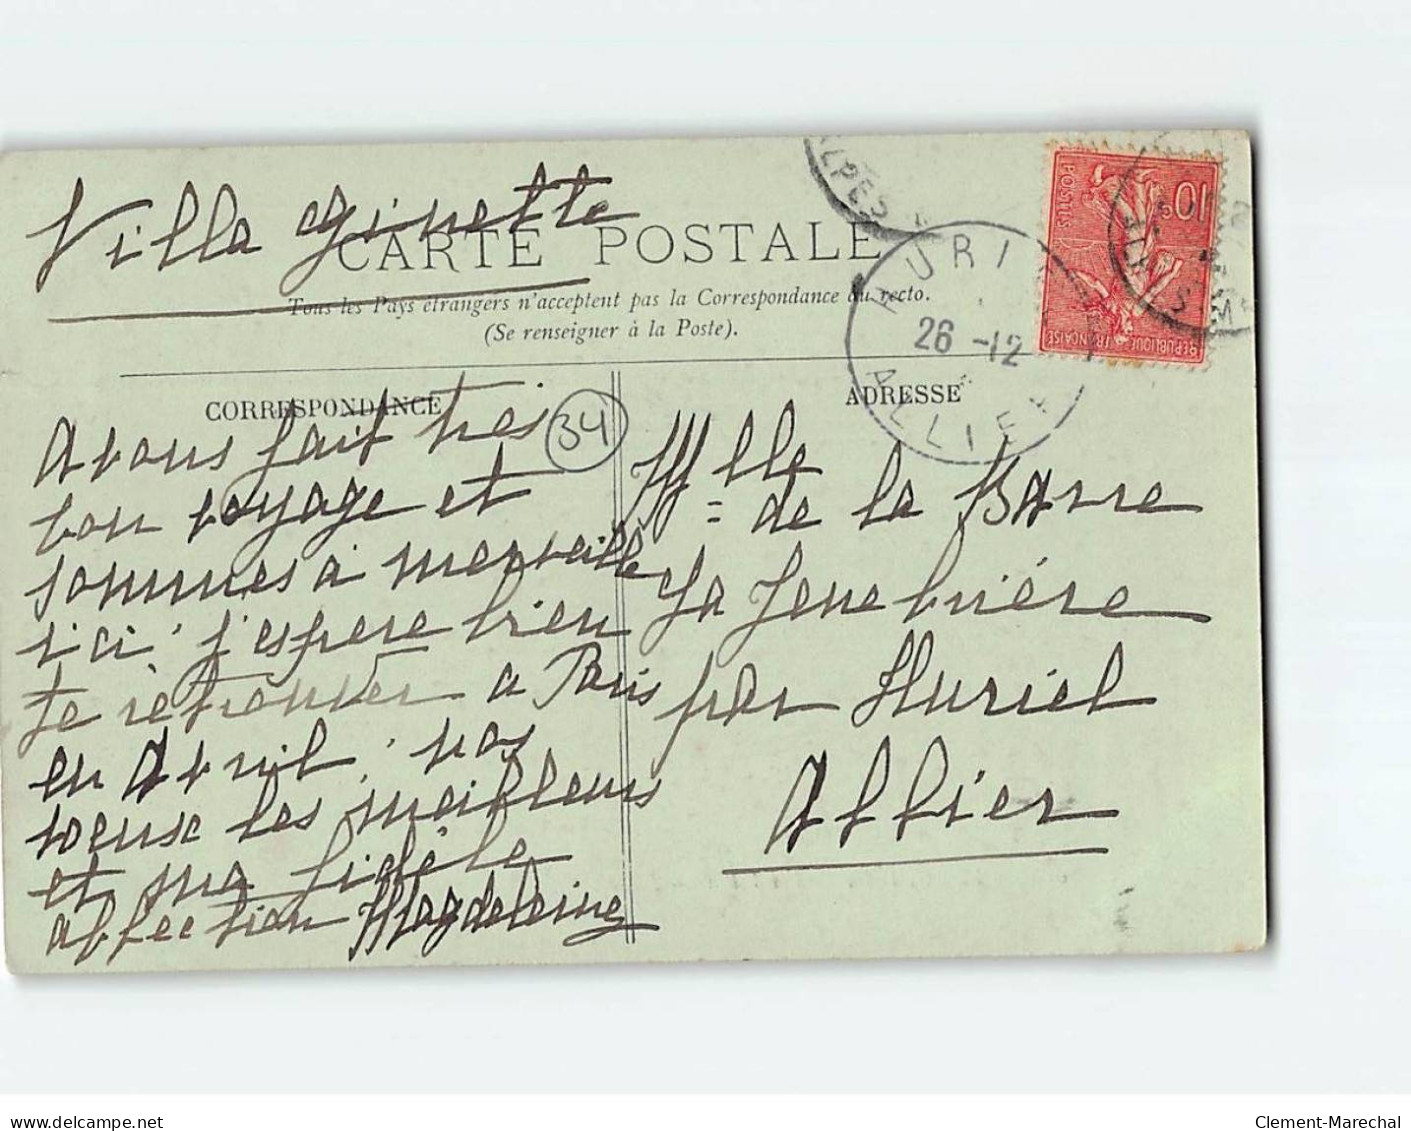 Villa Ginette
CARTE POSTALE
Tous les Pays étrangers n'acceptent pas la Correspondance au recto.
(Se renseigner à la Poste).
CORRESPONDANCE
ADRESSE
34
Avons fait très
bon voyage et
sommes à merveille
ici, j'espère bien
te retrouver à Paris
en Avril, nos
voeux les meilleurs
et ma fidèle
affection Magdeleine
Mlle
de la Barre
La Jenebrière
par Huriel
Allier
HURI
26 -12
ALLIE
ALPES
POSTES
10c
REPUBLIQUE FRANÇAISE
www.delcampe.net
Clement-Marechal